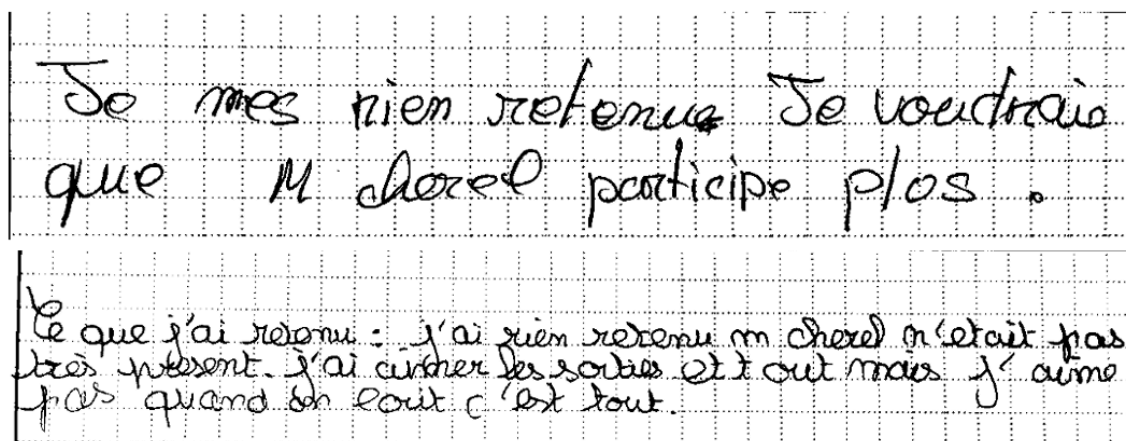 Je mes rien retenue Je voudrais
que M cherel participe plos.
Ce que j'ai retenu : j'ai rien retenu m cherel n'etait pas
très présent. j'ai aimer les sorties et tout mais j'aime
pas quand on court c'est tout.